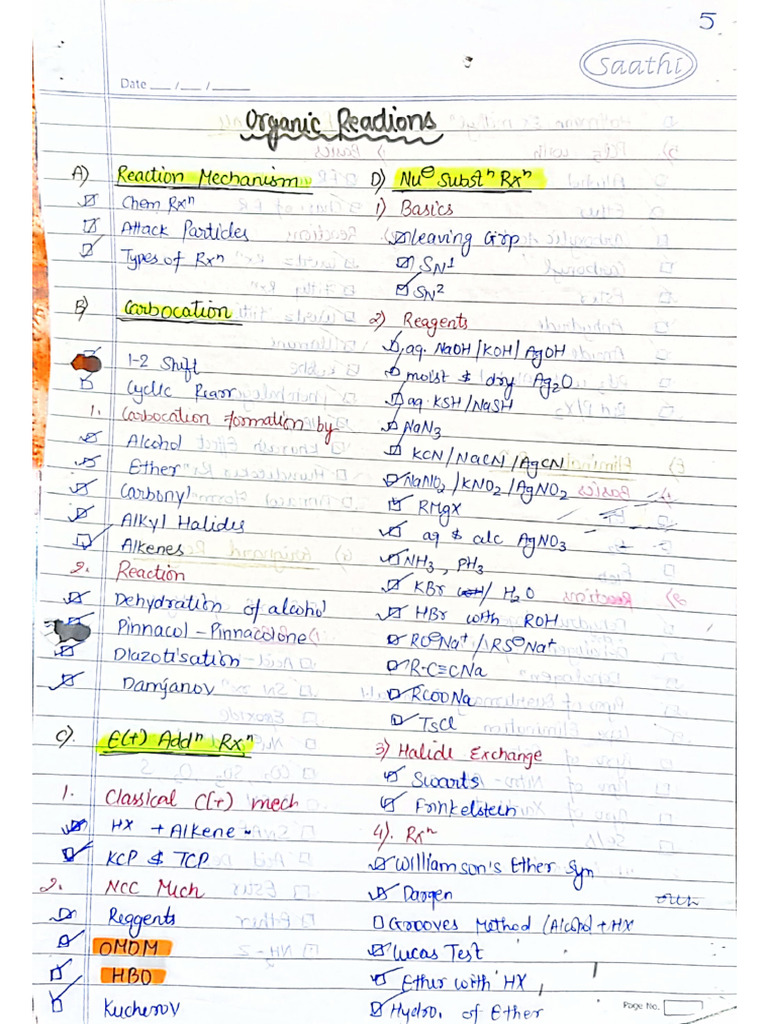 5
Saathi
Date __/__/____
Organic Readions
A) Reaction Mechanism
Chem Rxⁿ
Attack Particles
Types of Rxⁿ
B) Carbocation
1-2 Shift
Cyclic Rearr
1. Carbocation formation by
Alcohol
Ether
Carbonyl
Alkyl Halides
Alkenes
2. Reaction
Dehydration of alcohol
Pinnacol - Pinnacolone
Diazotisation
Damjanov
C). E(+) Addⁿ Rxⁿ
1. Classical C(+) mech
HX + Alkene
KCP & TCP
2. NCC Mech
Reagents
OMDM
HBO
Kucherov
D) Nu⊖ Substⁿ Rxⁿ
1) Basics
Leaving Grp
SN¹
SN²
2) Reagents
aq. NaOH/KOH/AgOH
moist & dry Ag₂O
aq. KSH/NaSH
NaN₃
KCN/NaCN/AgCN
NaNO₂/KNO₂/AgNO₂
RMgX
aq & alc AgNO₃
NH₃, PH₃
KBr / H₂O
HBr with ROH
RO⊖Na⁺/RS⊖Na⁺
R-C≡CNa
RCOONa
TsCl
3) Halide Exchange
Swarts
Finkelstein
4). Rxⁿ
Williamson's Ether Syn
Darzen
Grooves Method (Alcohol + HX
Lucas Test
Ether with HX
Hydro. of Ether
Page No.